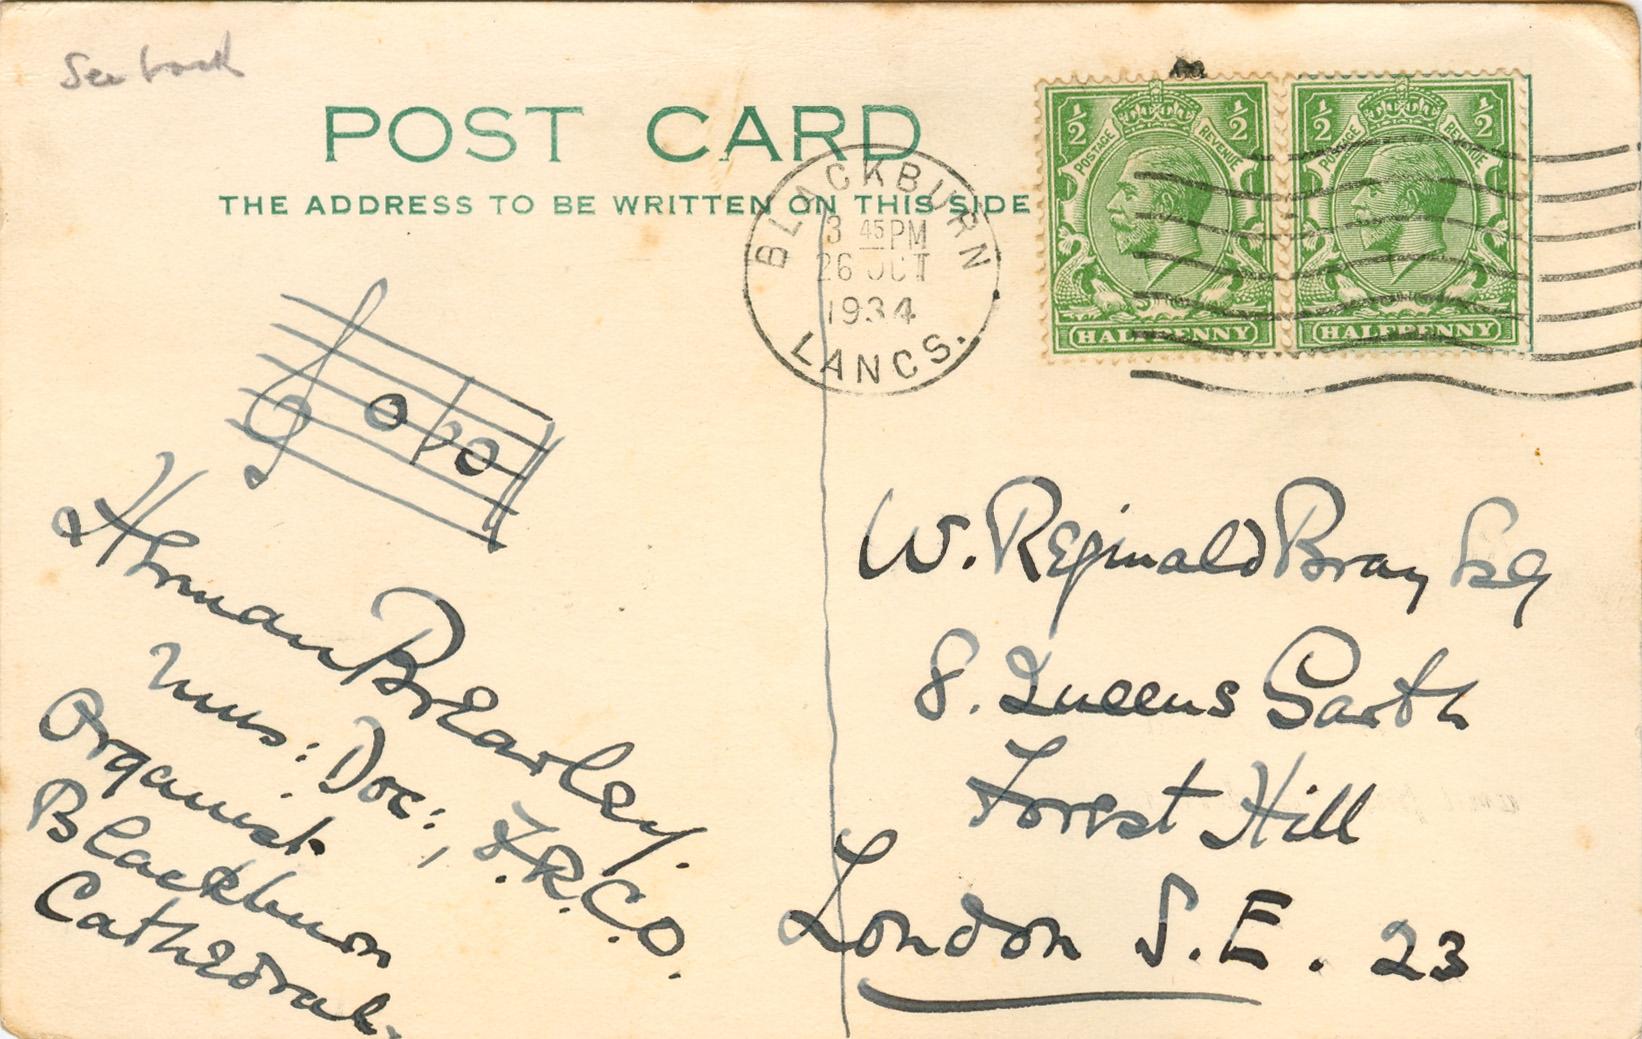 See back
POST CARD
THE ADDRESS TO BE WRITTEN ON THIS SIDE
BLACKBURN
3 45 PM
26 OCT
1934
LANCS.
½ POSTAGE REVENUE ½
HALFPENNY
½ POSTAGE REVENUE ½
HALFPENNY
Herman Brearley.
Mus: Doc:, F.R.C.O.
Organist
Blackburn
Cathedral.
W. Reginald Bray Esq
8. Queens Garth
Forest Hill
London S.E. 23